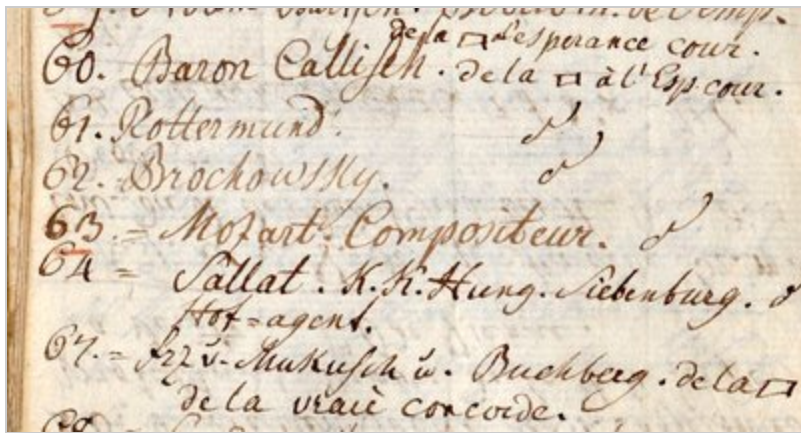 de la □ l'esperance cour.
60. Baron Callisch. de la □ à l'Esp. cour.
61. Rottermund.
62. Brochowsky.
63 = Mozart. Compositeur.
64 = Sallat. K. K. Hung. Siebenburg.
Hof=agent.
67. = v. Mukusch u. Buchberg. de la □
de la vraiè concorde.